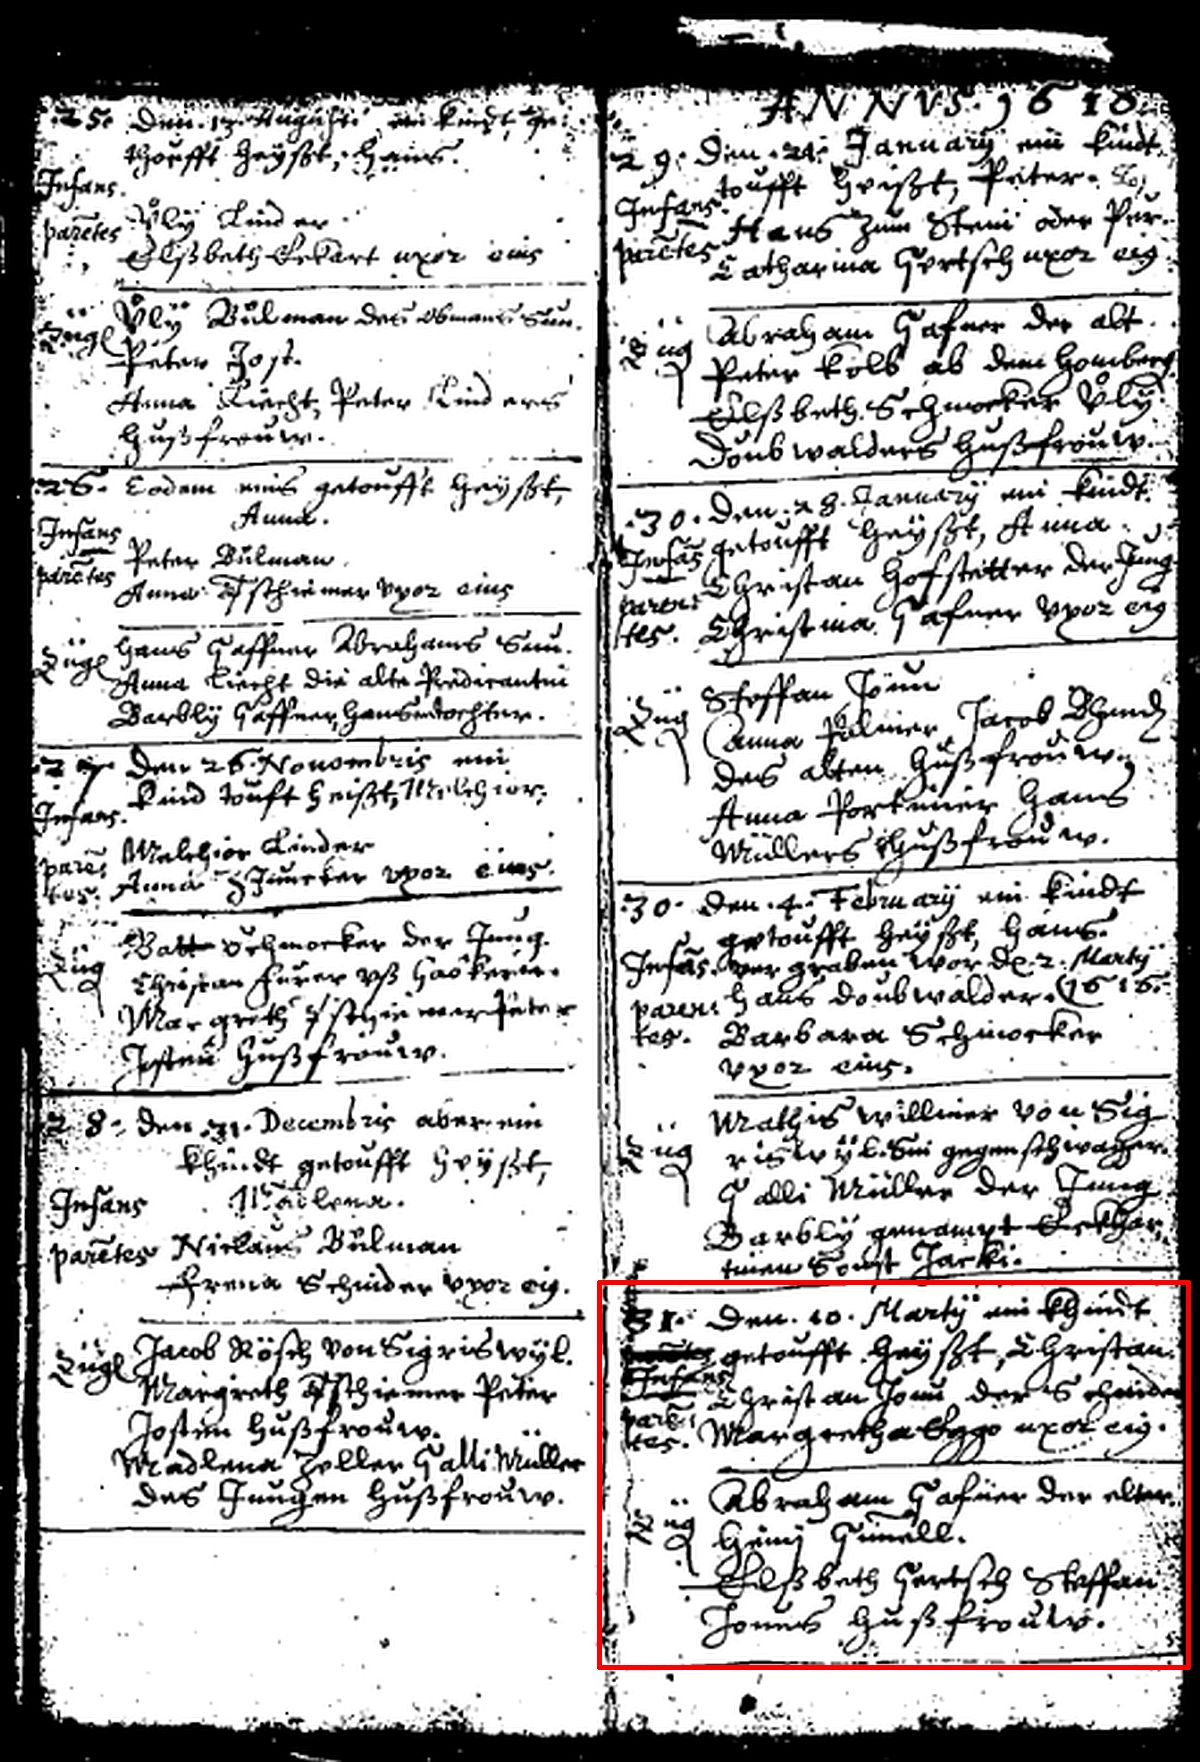 25. Den 17 Augusti ein kindt ge-
thoufft heÿßt, Hans.
Infans.
parẽtes Ůlÿ Linder
Elßbeth Eckart uxor eius
Zügẽ Ůlÿ Bülman des obmans Sun.
Peter Jost.
Anna Liecht, Peter Linders
hußfrouw.
26. Eodem eins getoufft heÿßt,
Anna.
Infans
parẽtes Peter Bülman.
Anna Tschiemer uxor eius
Zügẽ hans Gaffner Abrahams Sun.
Anna Liecht die alte Predicantin
Barblÿ Gaffner, hansen dochter.
27 Den 26 Nouembris ein
kind touft heißt, Melchior.
Infans.
paren Melchior Linder
tes. Anna uxor eius.
Züg Batt Schmocker der Jung.
Christan Furer uß
Margreth Tschiemer Peter
Josten hußfrouw.
28. Den 31. Decembris aber ein
khindt getoufft heÿßt,
Infans Madlena.
parẽtes Niclaus Bülman
Frena Schnider uxor eiꝰ.
Zügẽ Jacob Rösch von Sigriswÿl.
Margreth Tschiemer Peter
Josten hußfrouw.
Madlena Zeller Galli Müller
des Jungen hußfrouw.
ANNVS. 1610.
29. Den 21. Januarÿ ein kindt
toufft heißt, Peter.
Infans.
parẽtes Hans zum Stein oder Pur.
Catharina Gertsch uxor eiꝰ
Züg Abraham Gafner der alt.
Peter Kolb ab dem homberg
Elßbeth Schmocker Ůlÿ
Doubwalders hußfrouw.
30. Den 28. Januarÿ ein kindt
Infãs getoufft heÿßt, Anna.
paren Christan hofstetter der Jung
tes. Christina Gafner uxor eiꝰ
Züg Steffan Jonn
Anna Jacob
des alten hußfrouw.
Anna Portenier hans
Müllers hußfrouw.
30. Den 4. Februarÿ ein kindt
getoufft heÿßt, hans.
Infãs. vergraben wor dẽ 2. Martÿ
paren hans doubwalder. (1616.
tes. Barbara Schmocker
uxor eius.
Züg Mathis willner von Sig
riswÿl. Sin gegenschwager.
Galli Müller der Jung
Barblÿ genampt Eckhar
tinen Sonst Jacki.
31. Den 10. Martÿ ein khindt
getoufft heÿßt, Christan.
Infans Christan Jonn der Schnider
paren
tes. Margretha Eggo uxor eiꝰ.
Züg Abraham Gafner der elter.
heini Gimell.
Elßbeth Gertsch Steffan
Jonns hußfrouw.